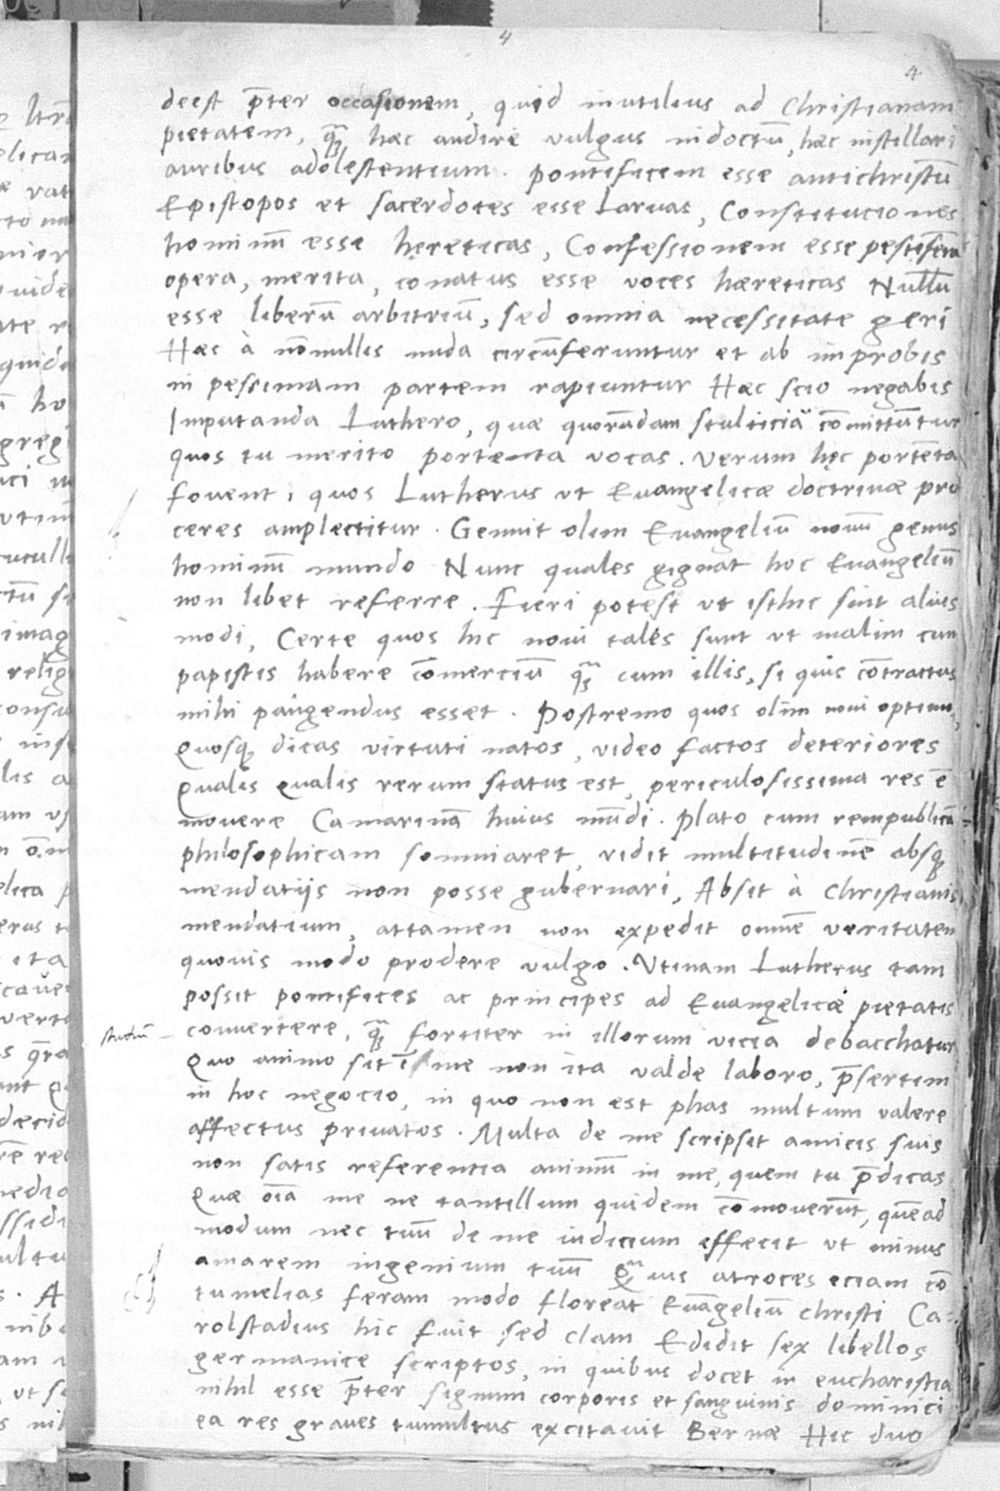 4
4
deest p̄ter occasionem, quid inutilius ad Christianam
pietatem, q̄ꝫ haec audire vulgus indoctū, haec instillari
auribus adolescentium. Pontificem esse antichristū
Episcopos et sacerdotes esse Larvas, Constituciones
hominū esse hęreticas, Confessionem esse pestiferā
opera, merita, conatus esse voces haereticas Nullū
esse liberū arbitriū, sed omnia necessitate geri
Haec à nōnullis nuda circūferuntur et ab improbis
in pessimam partem rapiuntur Haec scio negabis
Imputanda Luthero, quae quorūdam stulticiā cōmittūtur
quos tu merito portenta vocas. Verum hęc portēta
fovent, quos Lutherus ut Evangelicae doctrinae pro
ceres amplectitur. Genuit olim Evangeliū novū genus
hominū mundo Nunc quales gignat hoc Evangeliū
non libet referre. Fieri potest ut isthic sint alius
modi, Certe quos hic novi tales sunt ut malim cum
papistis habere cōmerciū q̄ꝫ cum illis, si quis cōtractus
mihi pangendus esset. Postremo quos olim novi optimos,
Quosqꝫ dicas virtuti natos, video factos deteriores
Qualis qualis rerum status est, periculosissima res ē
movere Camarinā huius mūdi. Plato cum rempublicā
philosophicam somniaret, vidit multitudinē absqꝫ
mendatijs non posse gubernari, Absit à Christianis
mendatium, attamen non expedit omnē veritatem
quovis modo prodere vulgo. Utinam Lutherus tam
possit pontifices ac principes ad Evangelicae pietatis
studiū – convertere, q̄ꝫ fortiter in illorum vicia debacchatur
Quo animo sit ī me non ita valde laboro, p̄sertim
in hoc negocio, in quo non est phas multum valere
affectus privatos. Multa de me scripsit amicis suis
non satis referentia animū in me, quem tu p̄dicas
Quae oīa me ne tantillum quidem cōmoverūt, quēad
modum nec tuū de me iudicium effecit ut minus
amarem ingenium tuū Q̄ vis atroces eciam cō
tumelias feram modo floreat Evāgeliū christi Ca-
rolstadius hic fuit sed clam Edidit sex libellos
germanice scriptos, in quibus docet in eucharistia
nihil esse p̄ter signum corporis et sanguinis dominici
ea res graves tumultus excitavit Bernae Hic duo